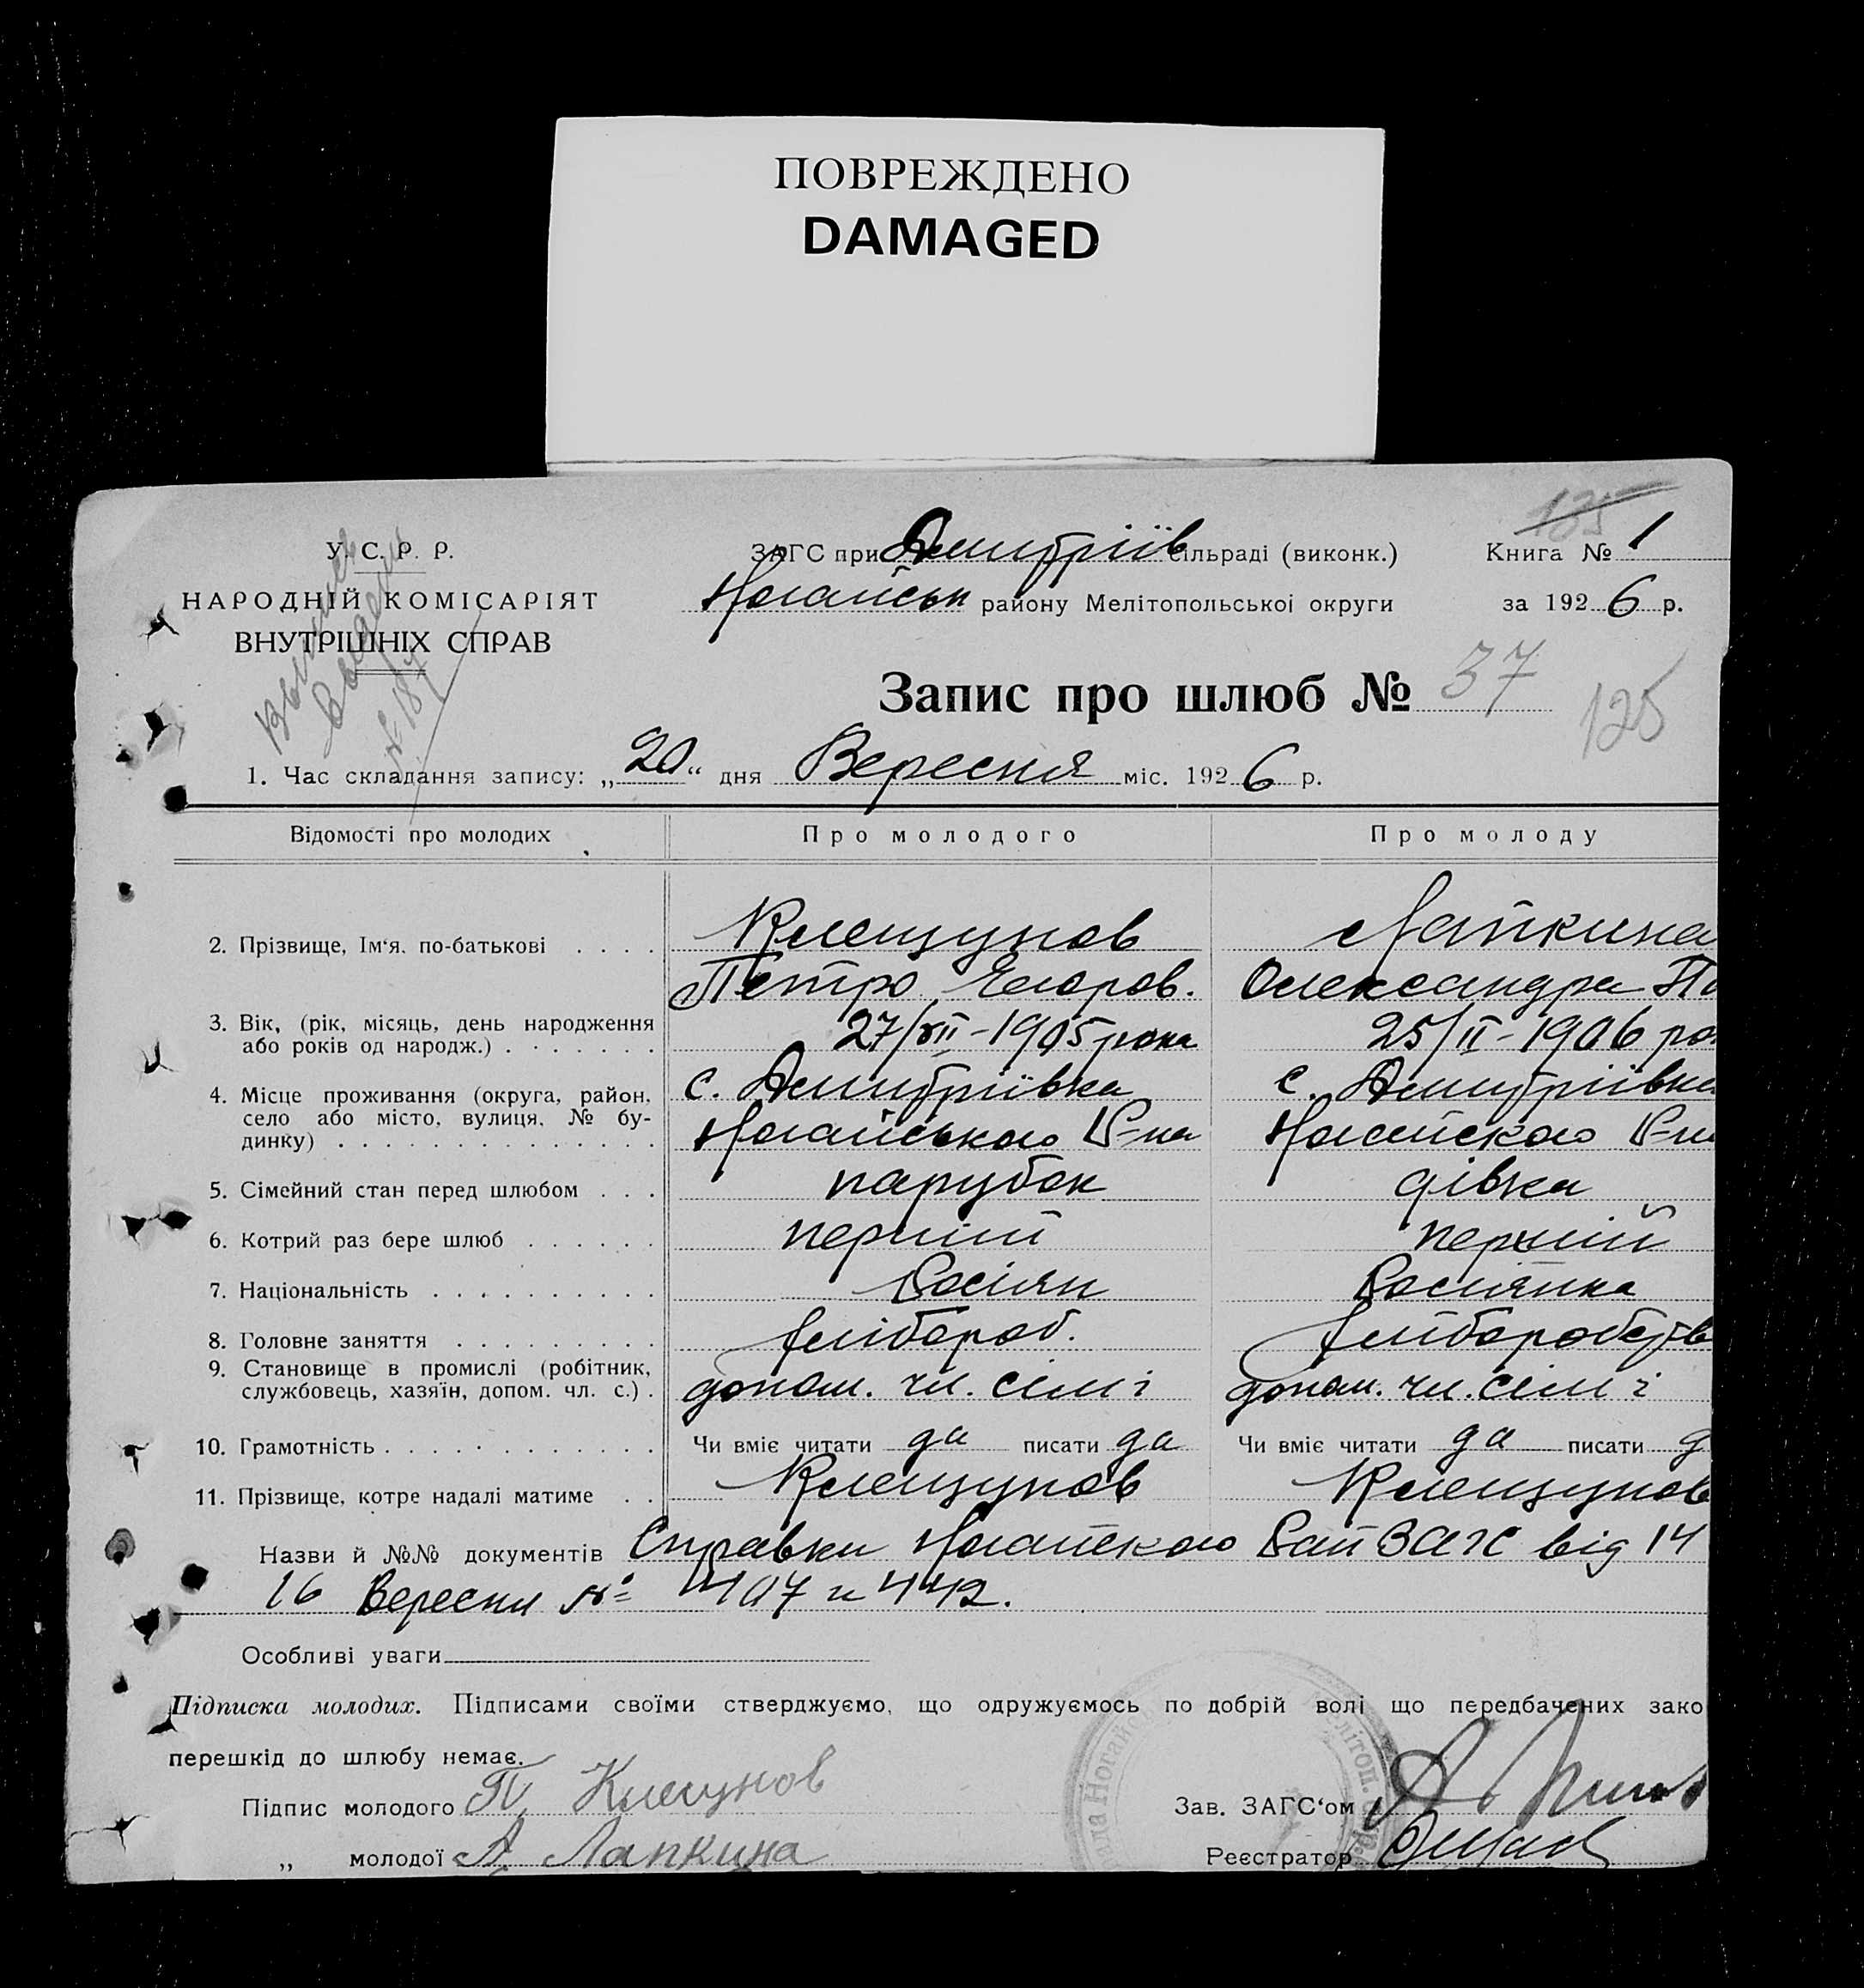 ПОВРЕЖДЕНО
DAMAGED
135
У. С. Р. Р.
НАРОДНІЙ КОМІСАРІЯТ
ВНУТРІШНІХ СПРАВ
ЗАГС при Дмитріїв сільраді (виконк.)
Книга № 1
Ногайськ району Мелітопольської округи
за 1926 р.
Запис про шлюб № 37
125
1. Час складання запису: „20" дня Вересня міс. 1926 р.
Відомості про молодих
Про молодого
Про молоду
2. Прізвище, Ім'я, по-батькові
Клещунов
Лапкина
Петро Егоров.
Олександра
3. Вік, (рік, місяць, день народження
або років од народж.)
27/VII-1905 рока
25/II-1906
4. Місце проживання (округа, район,
село або місто, вулиця, № бу-
динку)
с. Дмитріївка
с. Дмитріївка
Ногайського Р-на
Ногайского Р-н
5. Сімейний стан перед шлюбом
парубок
дівка
6. Котрий раз бере шлюб
перший
перший
7. Національність
Росіян
Росіянка
8. Головне заняття
хлібороб.
хлібороб
9. Становище в промислі (робітник,
службовець, хазяїн, допом. чл. с.)
допом. чл. сімі
допом. чл. сімі
10. Грамотність
Чи вміє читати да писати да
Чи вміє читати да писати д
11. Прізвище, котре надалі матиме
Клещунов
Клещунов
Назви й №№ документів Справки Ногайского РайЗАГС від 14
16 Вересня № 407 и 442.
Особливі уваги
Підписка молодих. Підписами своїми стверджуємо, що одружуємось по добрій волі що передбачених зако
перешкід до шлюбу немає.
Підпис молодого П. Клещунов
Зав. ЗАГС'ом
„ молодої А. Лапкина
Реєстратор